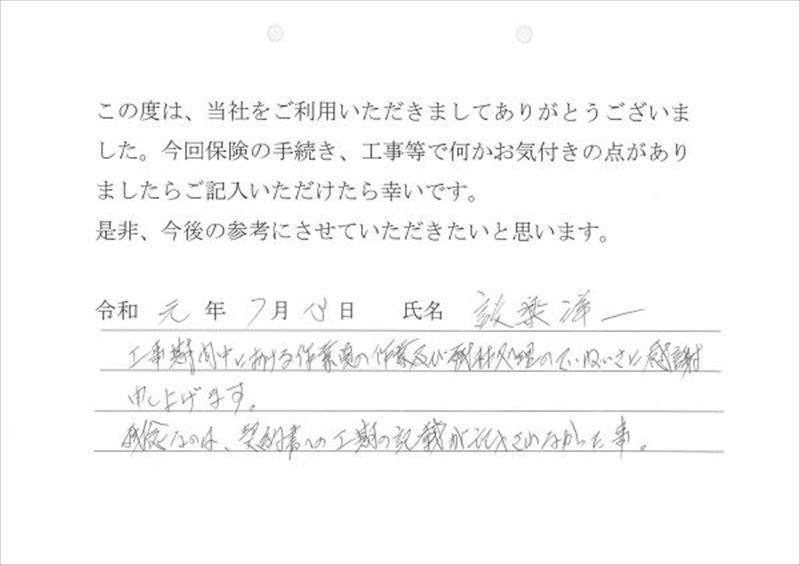 この度は、当社をご利用いただきましてありがとうございま
した。今回保険の手続き、工事等で何かお気付きの点があり
ましたらご記入いただけたら幸いです。
是非、今後の参考にさせていただきたいと思います。
令和 元 年 7月 日 氏名 設楽 洋一
工事期間中における作業員の作業及び残材処理のていねいさに感謝
申し上げます。
残念なのは、契約書への工期の記載が記入されなかった事。